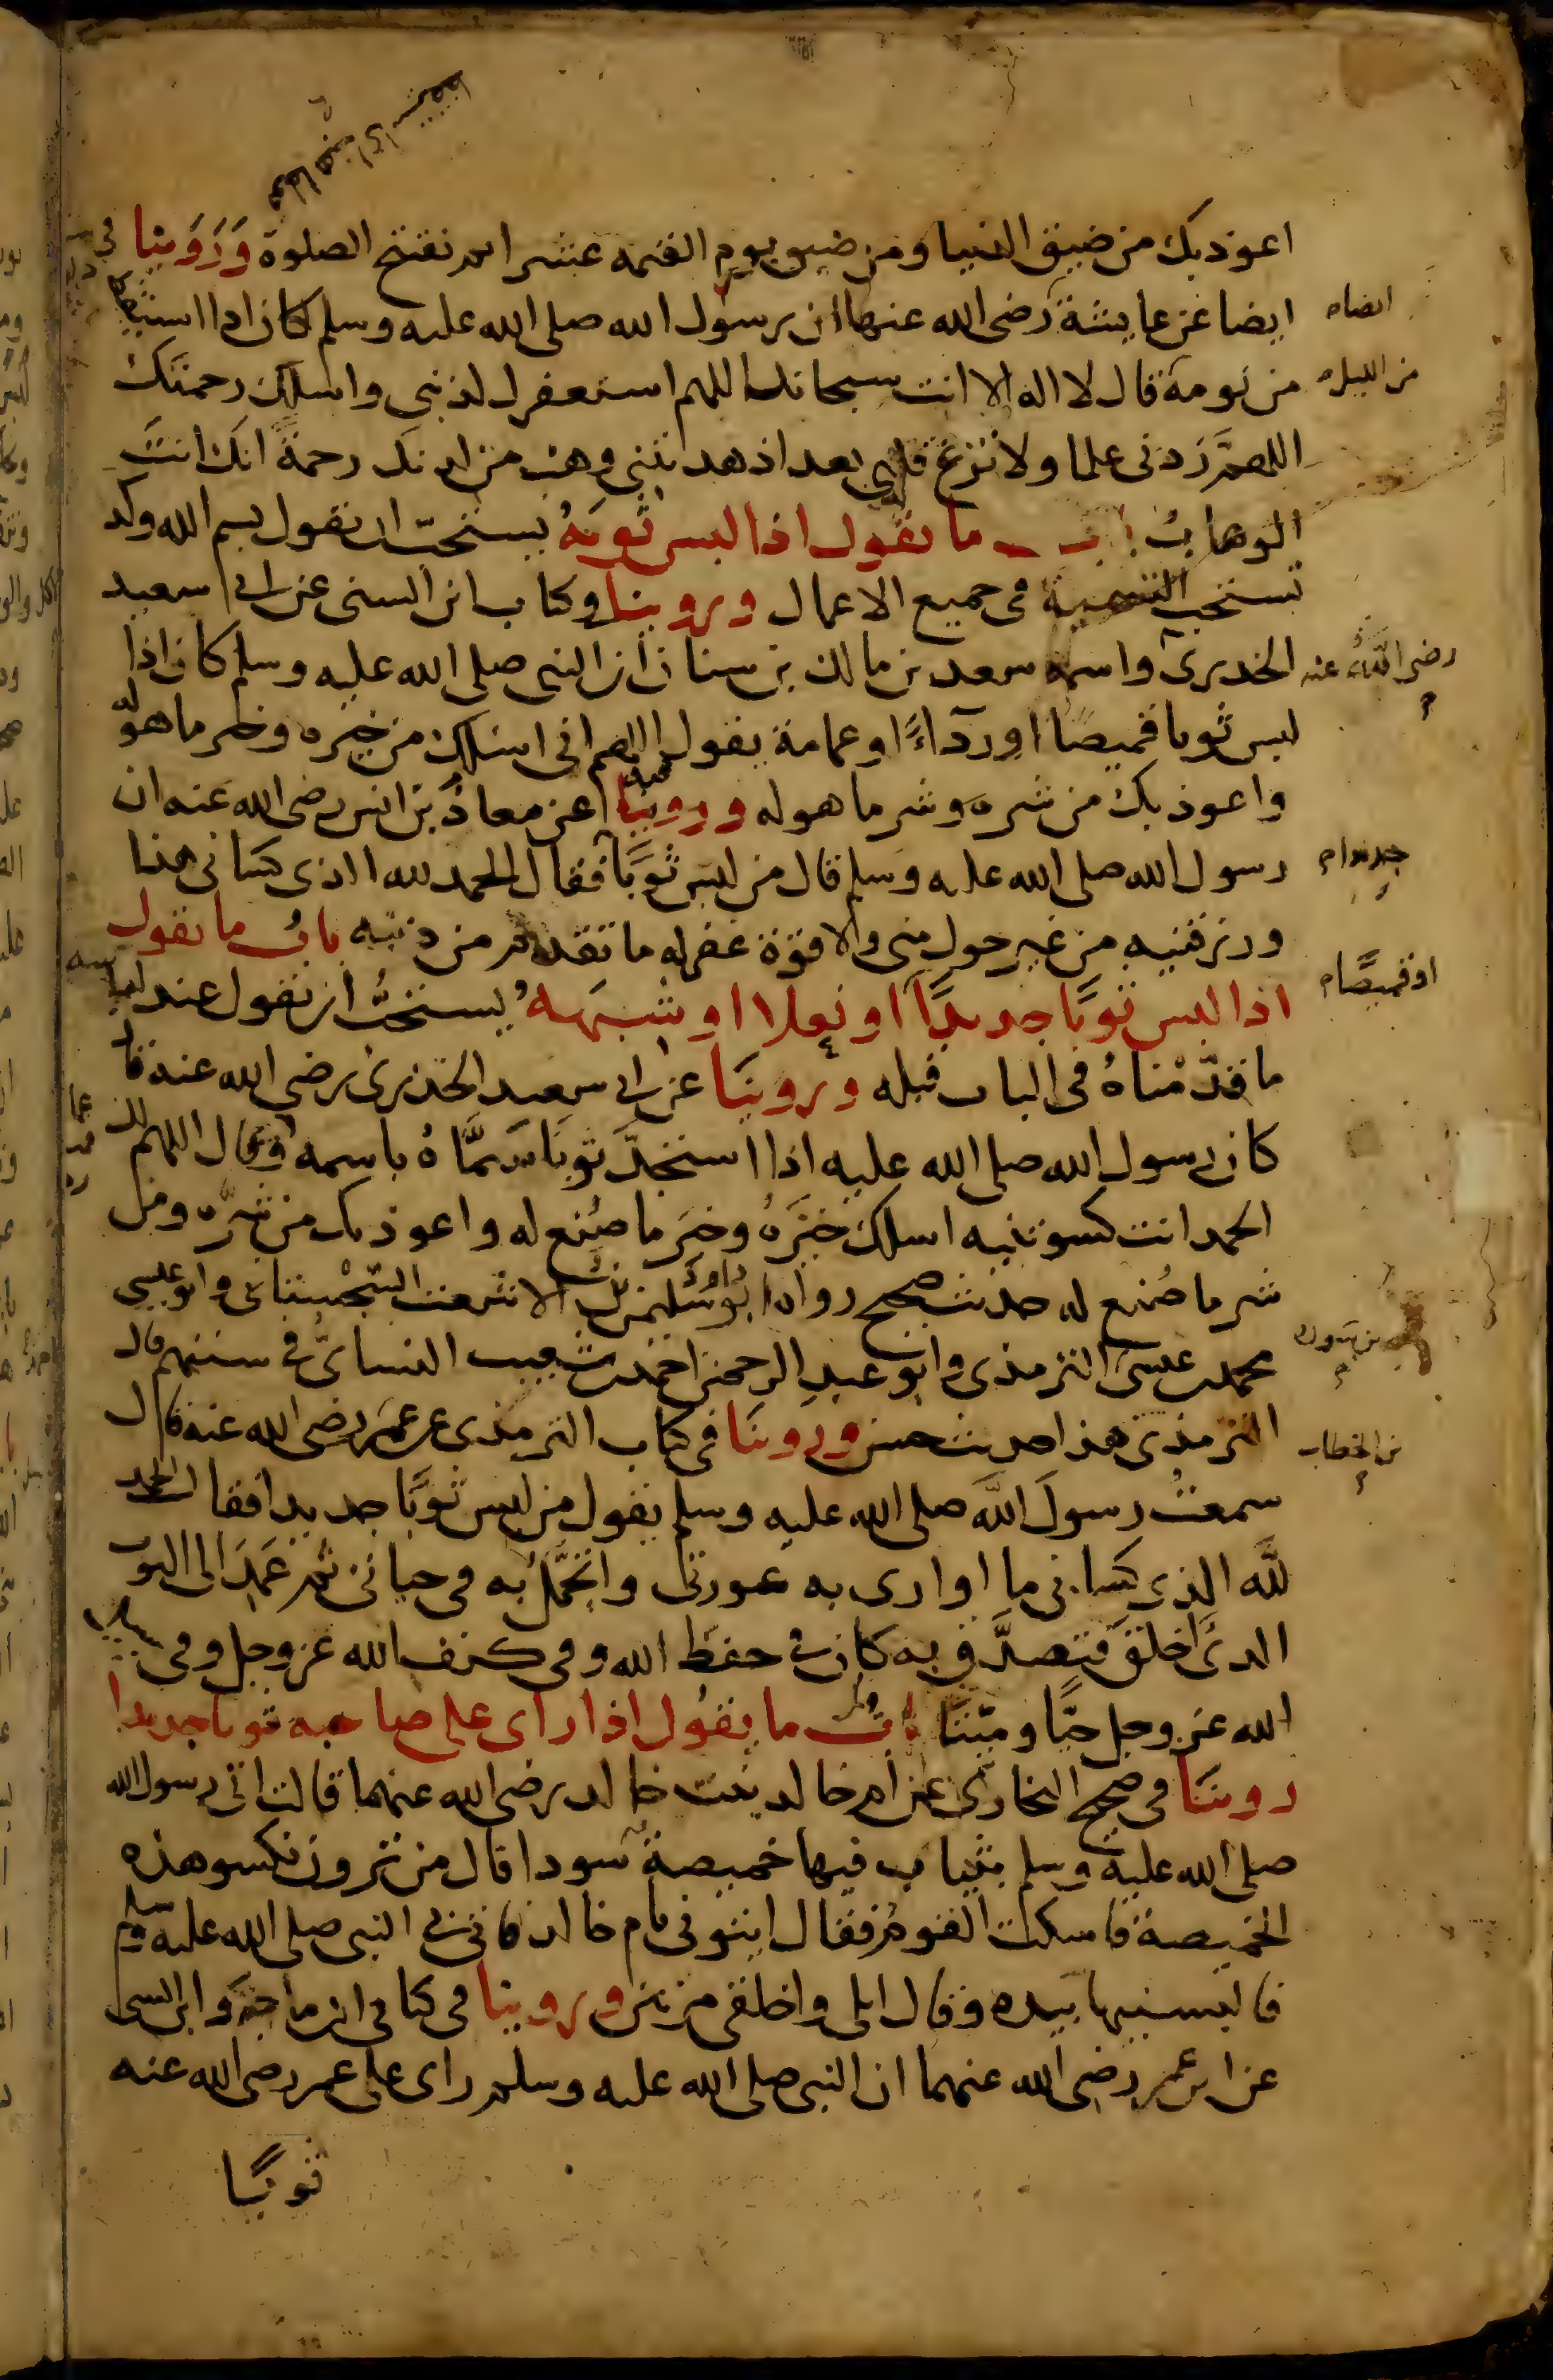 اعوذ بك من ضيق الدنيا ومن ضيق يوم القيمه عشرا ثم يفتتح الصلوة وَرَوَينا في
ايضا عن عايشة رضى الله عنها ان رسول الله صلى الله عليه وسلم كان اذا استيقظ
ايضا
من نومه قال لا اله الا انت سبحانك اللهم استغفرك لذنبي واسلك رحمتك
من الليل
اللهمَّ زدنى علما ولا تزغ قلبي بعد اذ هديتني وهب من لدنك رحمةً انك انتَ
الوهابُ باب ما يقول اذا لبس ثوبَهُ يستحبّ ان يقول بسم الله وكذ
تستحب التسمية فى جميع الاعمال وروينا في كتاب ابن السنى عن ابى سعيد
الخدرى واسمه سعد بن مالك بن سنان ان النبى صلى الله عليه وسلم كان اذا
رضى الله عنه
لبس ثوبا قميصًا او رداءً او عمامة يقول اللهم انى اسلك من خيره وخير ما هو له
واعوذ بك من شره وشر ما هو له وروينا فيه عن معاذ بن انس رضى الله عنه ان
رسول الله صلى الله عليه وسلم قال من لبس ثوبًا فقال الحمد لله الذى كسانى هذا
جديدا
ورزقنيه من غير حول منى ولا قوة غفر له ما تقدم من ذنبه بابُ ما يقول
اذا لبس ثوبًا جديدًا او نعلا او شبهَهُ يستحبُّ ان يقول عند لباسه
او قميصًا
ما قدّمْناهُ فى الباب قبله وروينا عن ابى سعيد الخدرى رضى الله عنه قال
كان رسول الله صلى الله عليه اذا استجدَّ ثوبًا سَمَّاهُ باسمه وقال اللهم لك
الحمد انت كسوتنيه اسلك خيرَهُ وخيرَ ما صُنع له واعوذ بك من شرِّه ومن
شر ما صُنع له حديث صحيح رواه ابو داود سليمن بن الاشعث السجستانى وابو عيسى
محمد بن عيسى الترمذى وابو عبد الرحمن احمد بن شعيب النسائى في سننهم قال
بن سورة
الترمذى هذا حديث حسن وروينا فى كتاب الترمذى عن عمر رضى الله عنه قال
بن الخطاب
سمعتُ رسولَ الله صلى الله عليه وسلم يقول من لبس ثوبًا جديدا فقال الحمد
لله الذى كسانى ما اوارى به عورتى واتجمَّلُ به فى حياتى ثم عَمَدَ الى الثوب
الذى اخلق فتصدَّق به كان في حفظ الله وفى كنف الله عز وجل وفى سبيل
الله عز وجل حيًّا وميّتًا بابُ ما يقول اذا راى على صاحبه ثوبا جديدا
روينا فى صحيح البخارى عن ام خالد بنت خالد رضى الله عنهما قالت اتى رسول الله
صلى الله عليه وسلم بثياب فيها خميصة سودا قال من ترون نكسو هذه
الخميصة فاسكت القوم فقال ايتونى بام خالد فاتى بى النبى صلى الله عليه وسلم
فالبسنيها بيده وقال ابلى واخلقى مرتين وروينا فى كتابى ابن ماجه وابن السنى
عن ابن عمر رضى الله عنهما ان النبى صلى الله عليه وسلم راى على عمر رضى الله عنه
ثوبًا